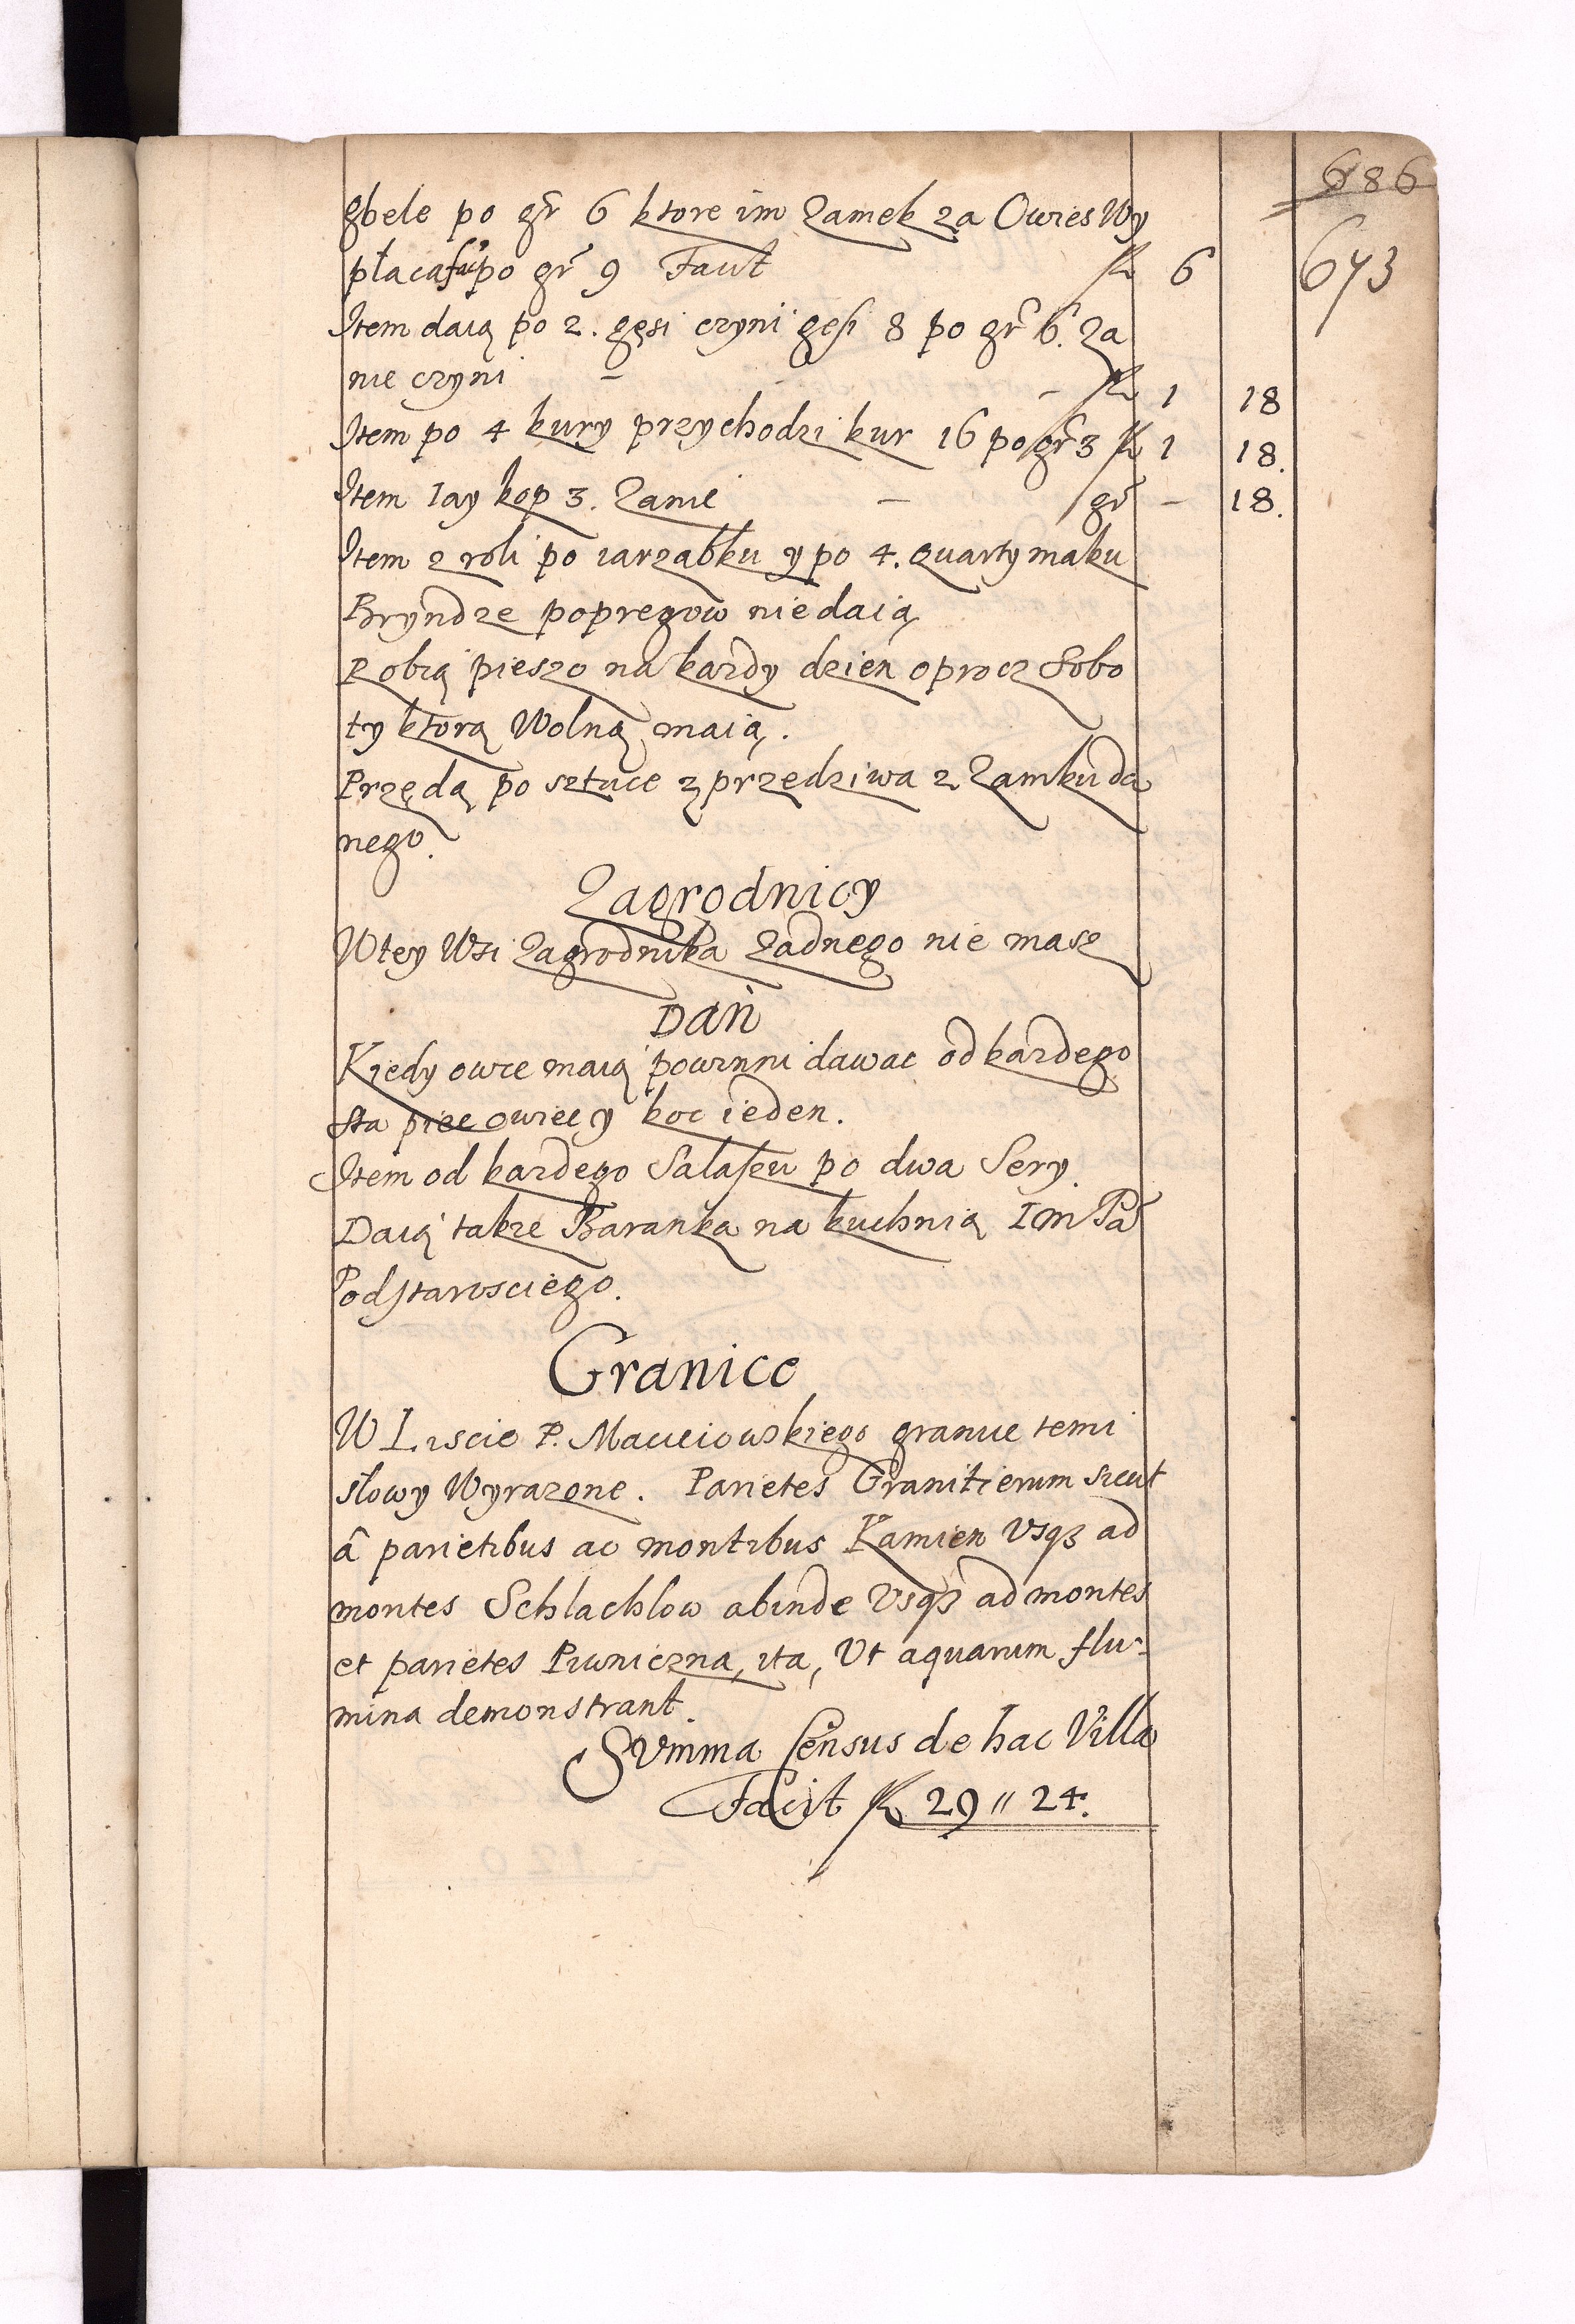 686
673
gbele po gr 6 ktore im Zamek za Owies Wy
płaca po gr 9 Facit 6
Item daią po 2. gęsi czyni gesi 8 po gr 6. Za
nie czyni - - 1 18
Item po 4 kury przychodzi kur 16 po gr 3 1 18.
Item Iay kop 3. Za nie - gr - 18.
Item z roli po iarząbku y po 4. quarty maku
Bryndze popregow nie daią
Robią pieszo na kazdy dzien oprocz Sobo
ty ktorą Wolną maią.
Przędą po sztuce z przędziwa z Zamku da
nego.
Zagrodnicy
W tey Wsi Zagrodnika Zadnego nie masz
Dań
Kiedy owce maią powinni dawac od kazdego
sta piec owiec y koc ieden.
Item od kazdego Salaszu po dwa Sery.
Daią takze Baranka na kuchnią Im Pa
Podstarosciego.
Granice
W Liscie P. Macieiowskiego granice temi
słowy Wyrazone. Parietes Granitierum sicut
â parietibus ac montibus Kamien Usq3 ad
montes Schlachlow abinde Usq3 ad montes
et parietes Piwniczna, ita, Ut aquarum flu-
mina demonstrant.
Summa Census de hac Villa
Facit 29 " 24.